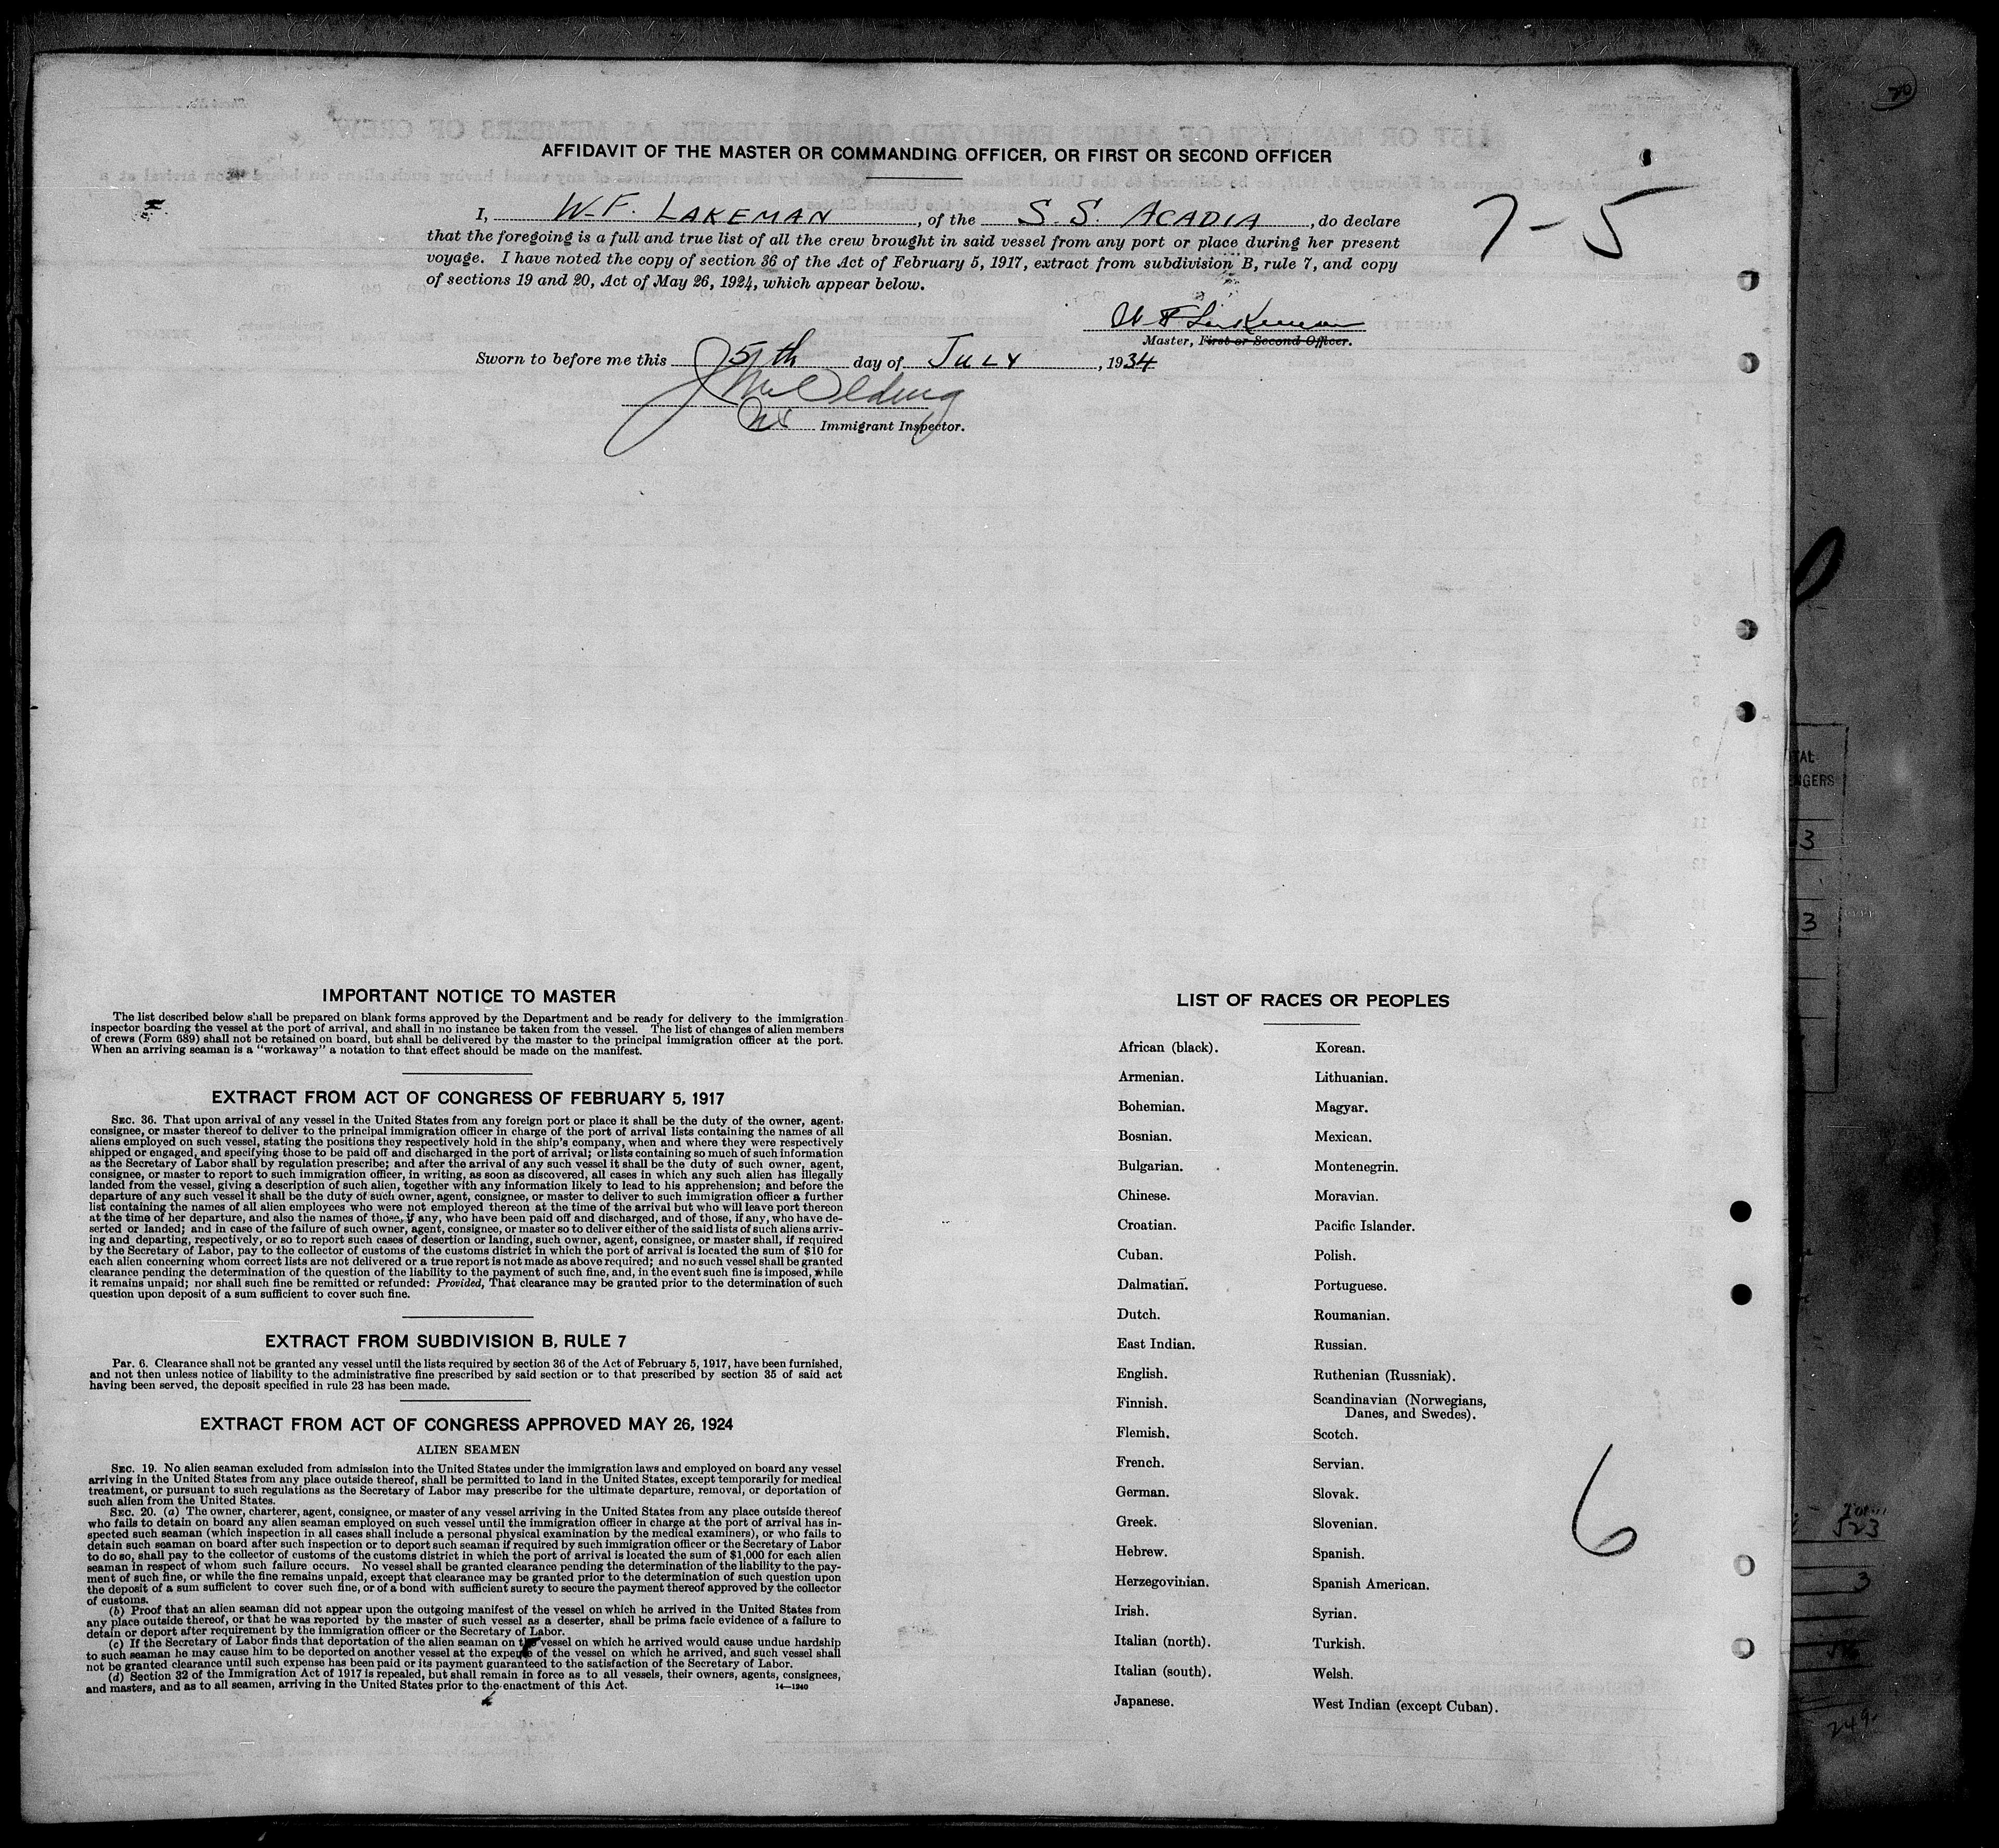 AFFIDAVIT OF THE MASTER OR COMMANDING OFFICER, OR FIRST OR SECOND OFFICER
I, W. F. LAKEMAN, of the S. S. ACADIA, do declare
that the foregoing is a full and true list of all the crew brought in said vessel from any port or place during her present
voyage. I have noted the copy of section 36 of the Act of February 5, 1917, extract from subdivision B, rule 7, and copy
of sections 19 and 20, Act of May 26, 1924, which appear below.
7-5
W F Lakeman
Master, First or Second Officer.
Sworn to before me this 5th day of JULY, 1934
Immigrant Inspector.
IMPORTANT NOTICE TO MASTER
The list described below shall be prepared on blank forms approved by the Department and be ready for delivery to the immigration
inspector boarding the vessel at the port of arrival, and shall in no instance be taken from the vessel. The list of changes of alien members
of crews (Form 689) shall not be retained on board, but shall be delivered by the master to the principal immigration officer at the port.
When an arriving seaman is a "workaway" a notation to that effect should be made on the manifest.
EXTRACT FROM ACT OF CONGRESS OF FEBRUARY 5, 1917
SEC. 36. That upon arrival of any vessel in the United States from any foreign port or place it shall be the duty of the owner, agent,
consignee, or master thereof to deliver to the principal immigration officer in charge of the port of arrival lists containing the names of all
aliens employed on such vessel, stating the positions they respectively hold in the ship's company, when and where they were respectively
shipped or engaged, and specifying those to be paid off and discharged in the port of arrival; or lists containing so much of such information
as the Secretary of Labor shall by regulation prescribe; and after the arrival of any such vessel it shall be the duty of such owner, agent,
consignee, or master to report to such immigration officer, in writing, as soon as discovered, all cases in which any such alien has illegally
landed from the vessel, giving a description of such alien, together with any information likely to lead to his apprehension; and before the
departure of any such vessel it shall be the duty of such owner, agent, consignee, or master to deliver to such immigration officer a further
list containing the names of all alien employees who were not employed thereon at the time of the arrival but who will leave port thereon
at the time of her departure, and also the names of those, if any, who have been paid off and discharged, and of those, if any, who have de-
serted or landed; and in case of the failure of such owner, agent, consignee, or master so to deliver either of the said lists of such aliens arriv-
ing and departing, respectively, or so to report such cases of desertion or landing, such owner, agent, consignee, or master shall, if required
by the Secretary of Labor, pay to the collector of customs of the customs district in which the port of arrival is located the sum of $10 for
each alien concerning whom correct lists are not delivered or a true report is not made as above required; and no such vessel shall be granted
clearance pending the determination of the question of the liability to the payment of such fine, and, in the event such fine is imposed, while
it remains unpaid; nor shall such fine be remitted or refunded: Provided, That clearance may be granted prior to the determination of such
question upon deposit of a sum sufficient to cover such fine.
EXTRACT FROM SUBDIVISION B, RULE 7
PAR. 6. Clearance shall not be granted any vessel until the lists required by section 36 of the Act of February 5, 1917, have been furnished,
and not then unless notice of liability to the administrative fine prescribed by said section or to that prescribed by section 35 of said act
having been served, the deposit specified in rule 23 has been made.
EXTRACT FROM ACT OF CONGRESS APPROVED MAY 26, 1924
ALIEN SEAMEN
SEC. 19. No alien seaman excluded from admission into the United States under the immigration laws and employed on board any vessel
arriving in the United States from any place outside thereof, shall be permitted to land in the United States, except temporarily for medical
treatment, or pursuant to such regulations as the Secretary of Labor may prescribe for the ultimate departure, removal, or deportation of
such alien from the United States.
SEC. 20. (a) The owner, charterer, agent, consignee, or master of any vessel arriving in the United States from any place outside thereof
who fails to detain on board any alien seaman employed on such vessel until the immigration officer in charge at the port of arrival has in-
spected such seaman (which inspection in all cases shall include a personal physical examination by the medical examiners), or who fails to
detain such seaman on board after such inspection or to deport such seaman if required by such immigration officer or the Secretary of Labor
to do so, shall pay to the collector of customs of the customs district in which the port of arrival is located the sum of $1,000 for each alien
seaman in respect of whom such failure occurs. No vessel shall be granted clearance pending the determination of the liability to the pay-
ment of such fine, or while the fine remains unpaid, except that clearance may be granted prior to the determination of such question upon
the deposit of a sum sufficient to cover such fine, or of a bond with sufficient surety to secure the payment thereof approved by the collector
of customs.
(b) Proof that an alien seaman did not appear upon the outgoing manifest of the vessel on which he arrived in the United States from
any place outside thereof, or that he was reported by the master of such vessel as a deserter, shall be prima facie evidence of a failure to
detain or deport after requirement by the immigration officer or the Secretary of Labor.
(c) If the Secretary of Labor finds that deportation of the alien seaman on the vessel on which he arrived would cause undue hardship
to such seaman he may cause him to be deported on another vessel at the expense of the vessel on which he arrived, and such vessel shall
not be granted clearance until such expense has been paid or its payment guaranteed to the satisfaction of the Secretary of Labor.
(d) Section 32 of the Immigration Act of 1917 is repealed, but shall remain in force as to all vessels, their owners, agents, consignees,
and masters, and as to all seamen, arriving in the United States prior to the enactment of this Act.
14—1240
LIST OF RACES OR PEOPLES
African (black). Korean.
Armenian. Lithuanian.
Bohemian. Magyar.
Bosnian. Mexican.
Bulgarian. Montenegrin.
Chinese. Moravian.
Croatian. Pacific Islander.
Cuban. Polish.
Dalmatian. Portuguese.
Dutch. Roumanian.
East Indian. Russian.
English. Ruthenian (Russniak).
Finnish. Scandinavian (Norwegians,
Danes, and Swedes).
Flemish. Scotch.
French. Servian.
German. Slovak.
Greek. Slovenian.
Hebrew. Spanish.
Herzegovinian. Spanish American.
Irish. Syrian.
Italian (north). Turkish.
Italian (south). Welsh.
Japanese. West Indian (except Cuban).
6
20
3
3
523
3
249